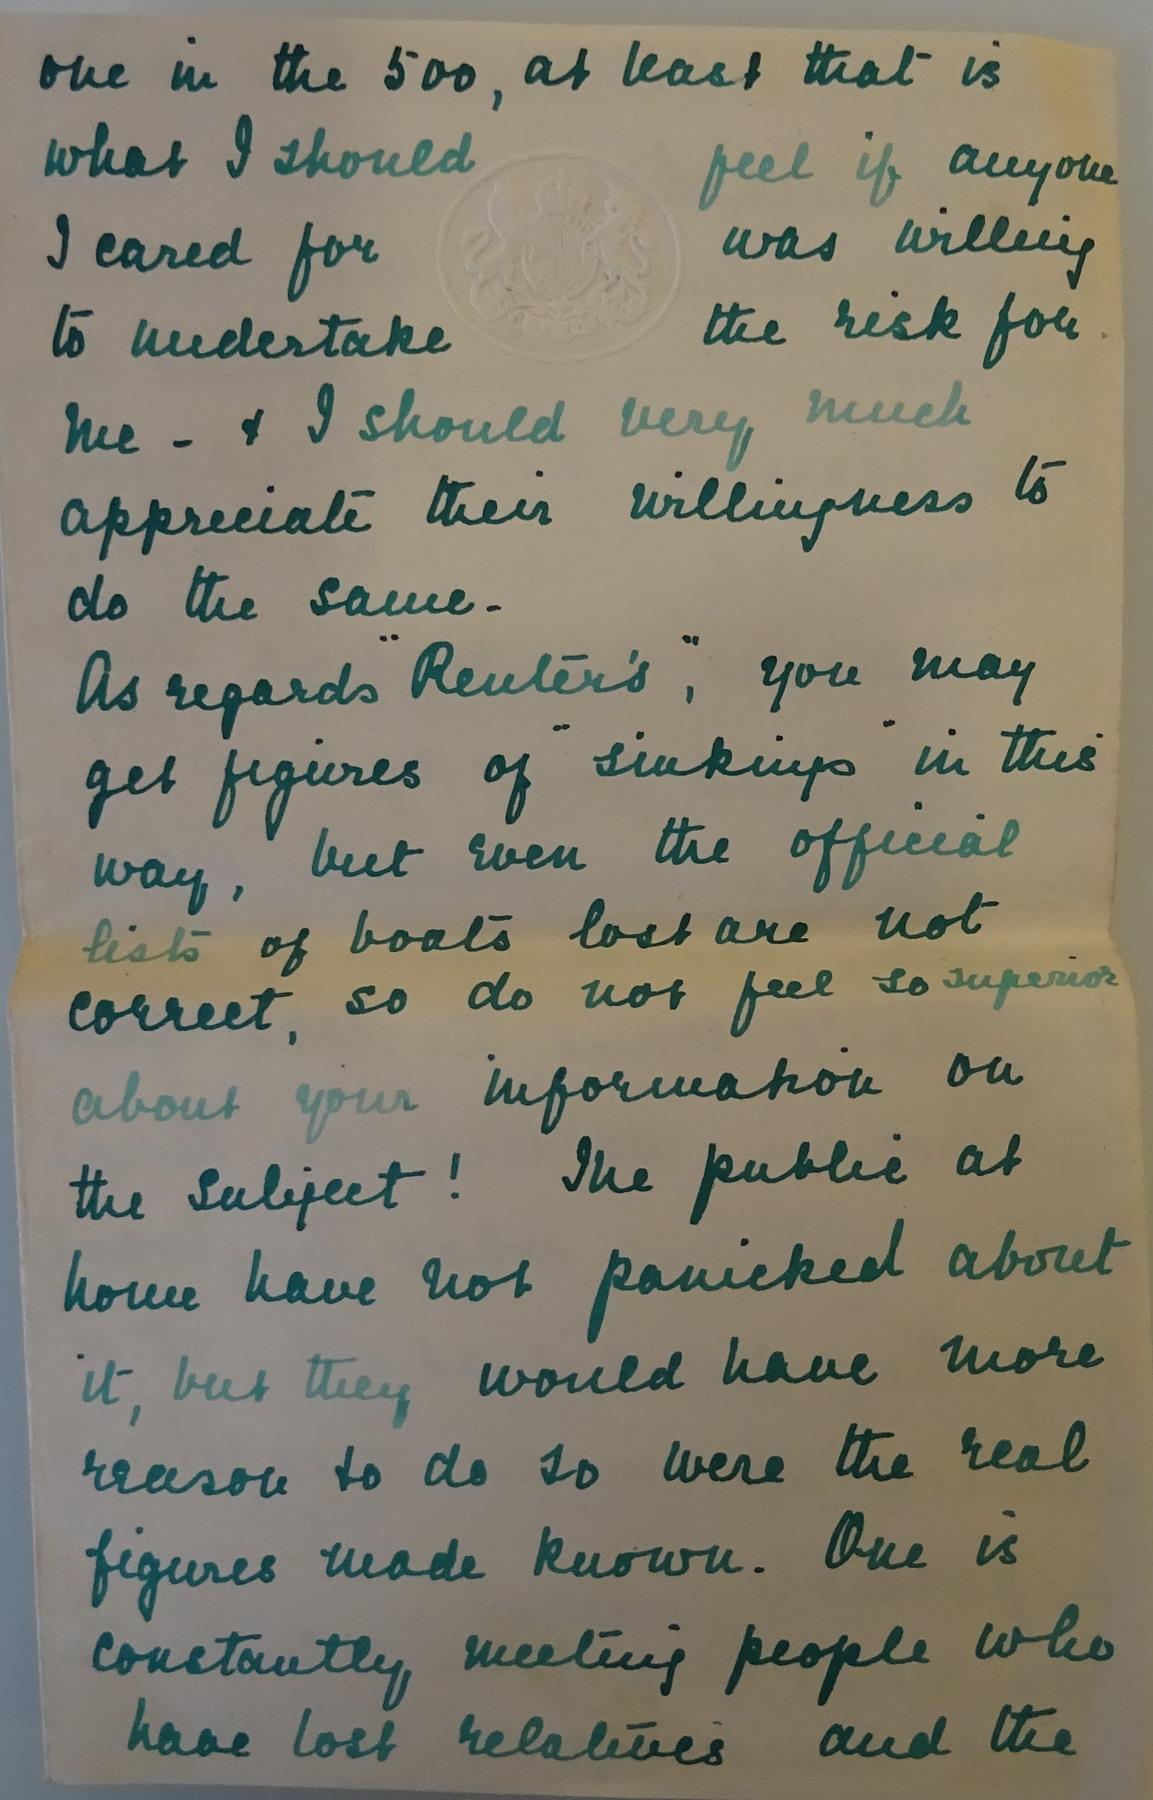 one in the 500, at least that is
what I should feel if anyone
I cared for was willing
to undertake the risk for
me - & I should very much
appreciate their willingness to
do the same -
As regards "Reuter's", you may
get figures of "sinkings" in this
way, but even the official
lists of boats lost are not
correct, so do not feel so superior
about your information on
the subject! The public at
home have not panicked about
it, but they would have more
reason to do so were the real
figures made known. One is
constantly meeting people who
have lost relatives and the